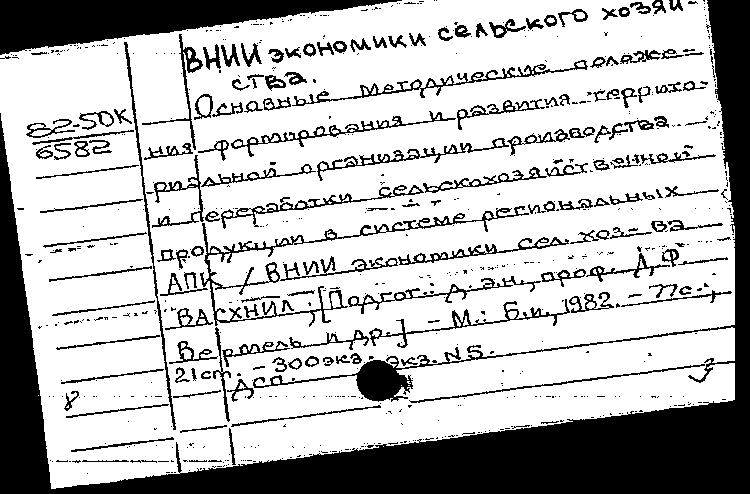 ВНИИ экономики сельского хозяй-
ства.
82-5ДК
6582
Основные методические положе=
ния формирования и развития террито-
риальной организации производства
и переработки сельскохозяйственной
продукции в системе региональных
АПК / ВНИИ экономики сел. хоз-ва
ВАСХНИЛ; [Подгот.: д.э.н., проф. Д.Ф.
Вермель и др.] - М.: Б.и., 1982. - 77с.;
21cm. - 300экз. экз. N5.
Дсп.
8